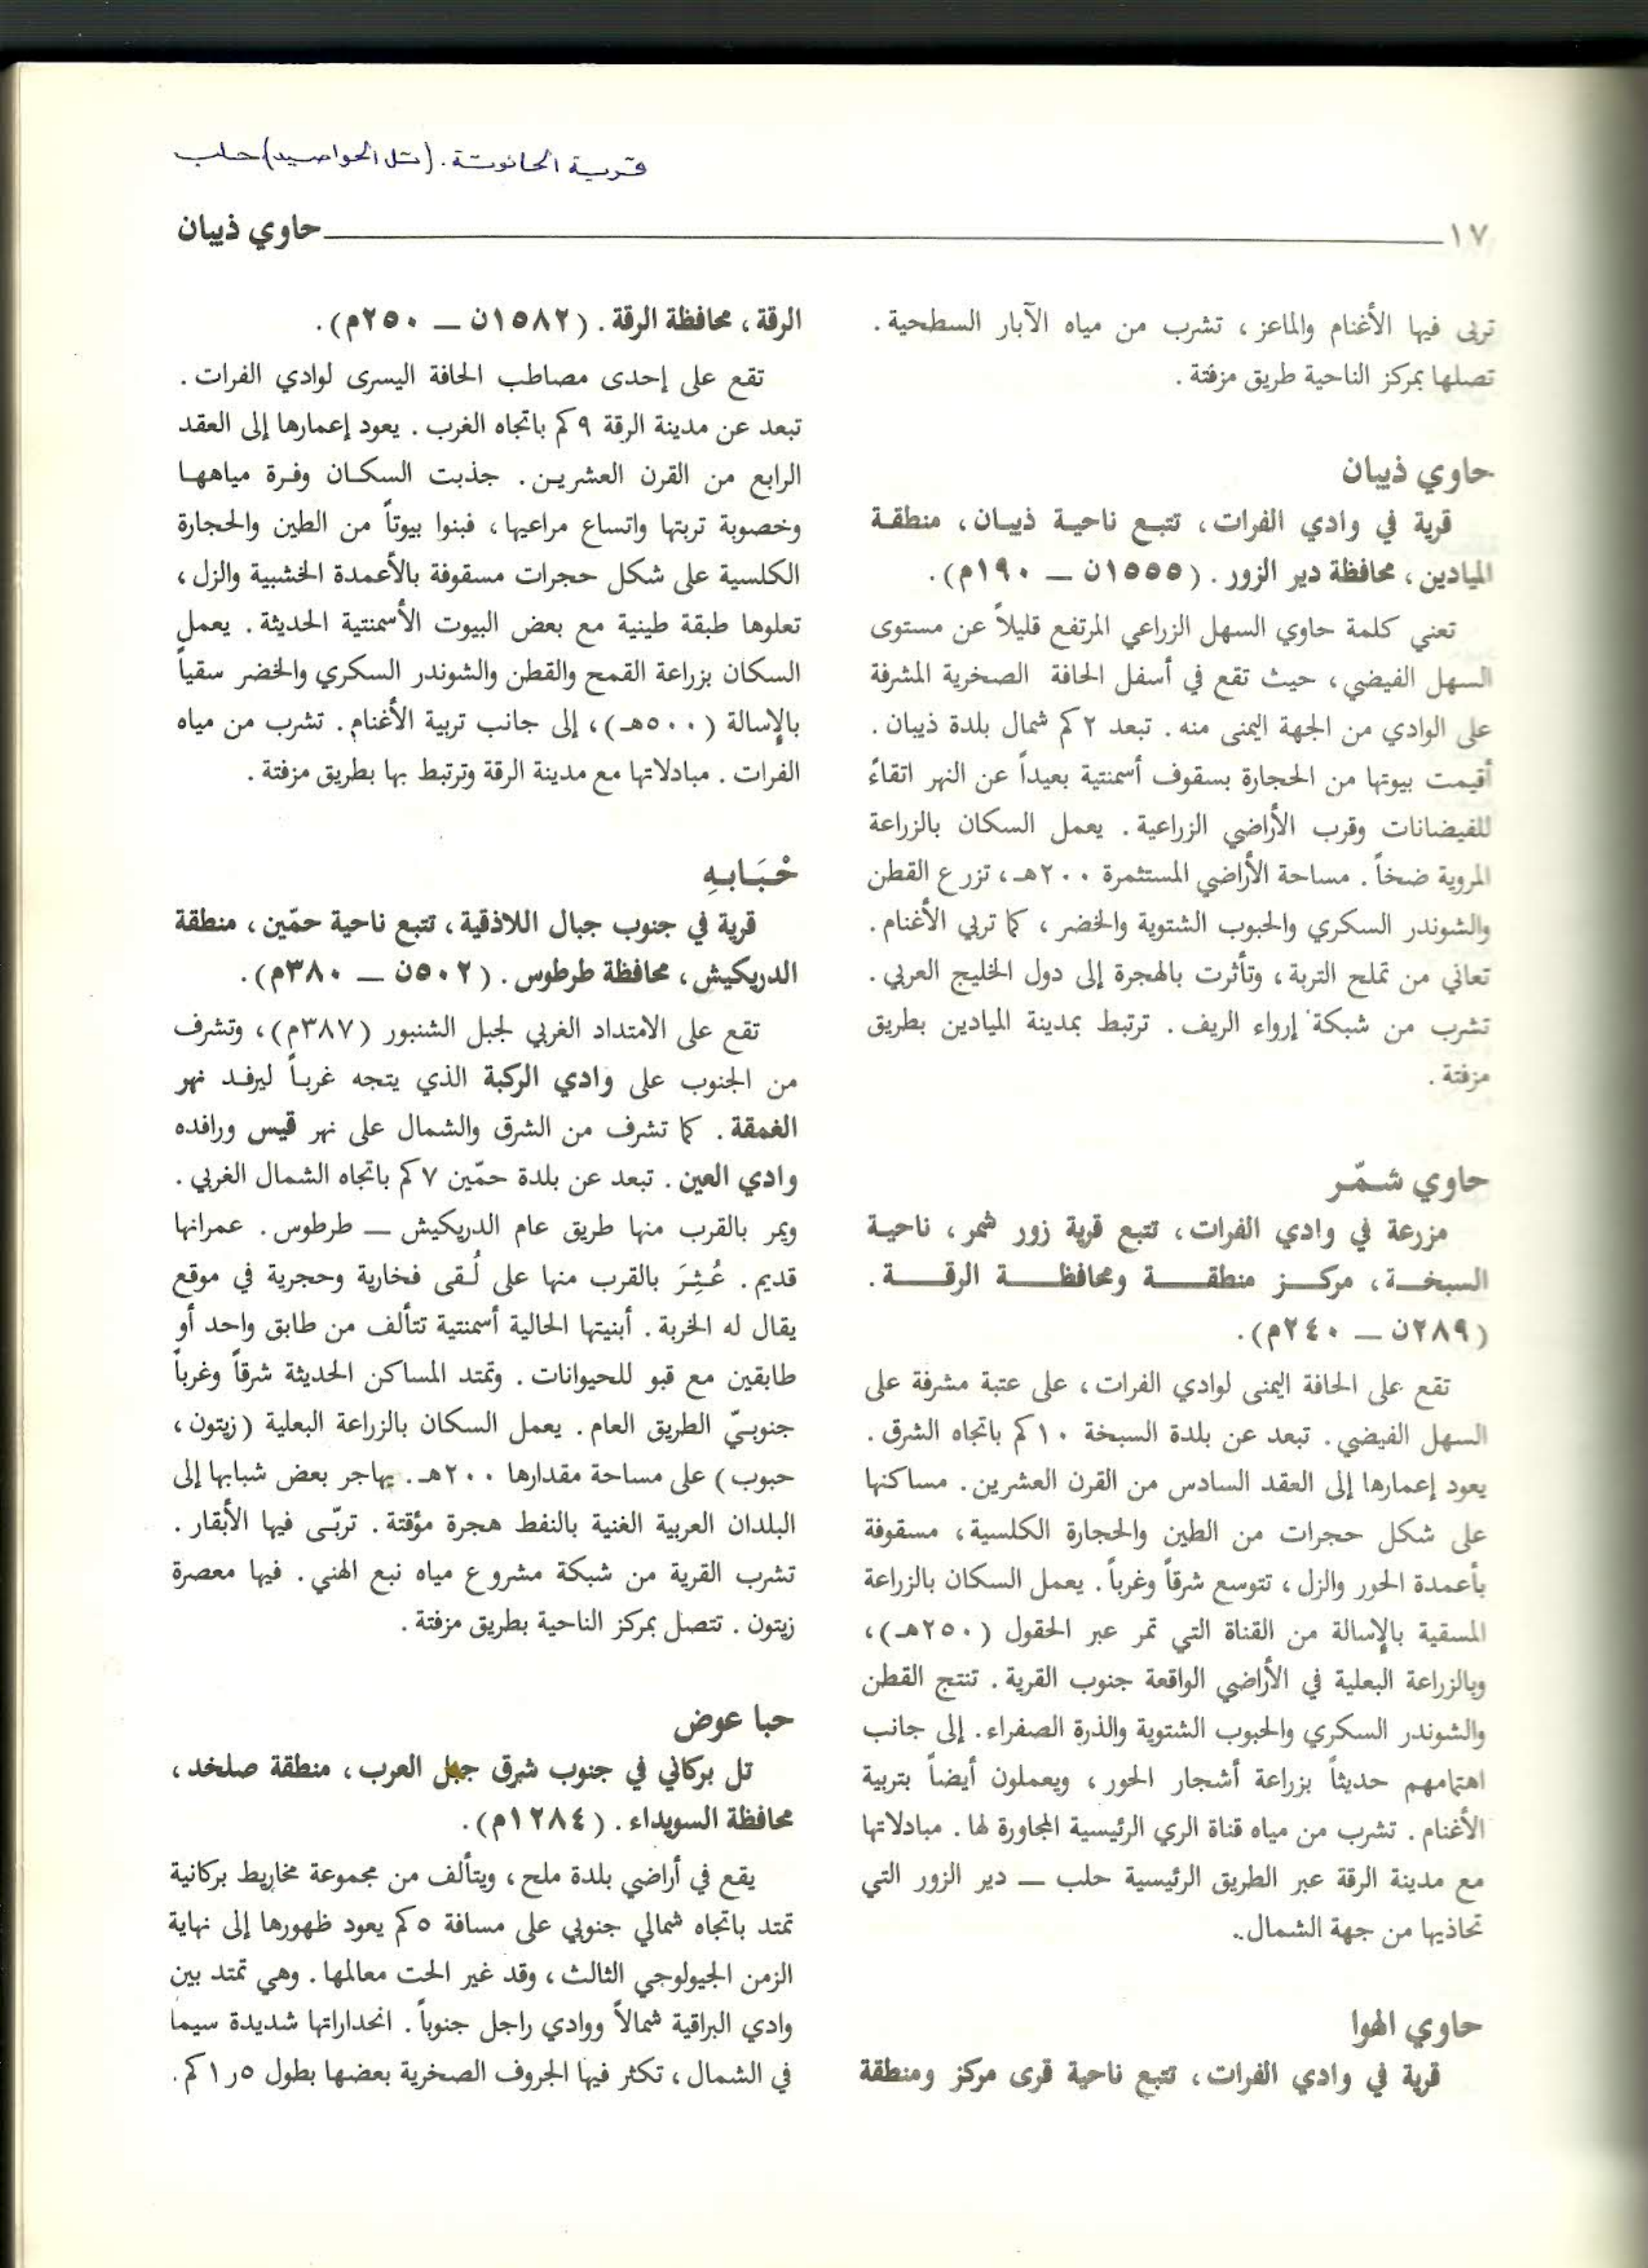 قرية الحانوتة. (تل الحواصيد) حلب
١٧ حاوي ذيبان
تربى فيها الأغنام والماعز، تشرب من مياه الآبار السطحية.
تصلها بمركز الناحية طريق مزفتة.
حاوي ذيبان
قرية في وادي الفرات، تتبع ناحية ذيبان، منطقة
الميادين، محافظة دير الزور. (١٥٥٥ن — ١٩٠م).
تعني كلمة حاوي السهل الزراعي المرتفع قليلاً عن مستوى
السهل الفيضي، حيث تقع في أسفل الحافة الصخرية المشرفة
على الوادي من الجهة اليمنى منه. تبعد ٢ كم شمال بلدة ذيبان.
أقيمت بيوتها من الحجارة بسقوف أسمنتية بعيداً عن النهر اتقاءً
للفيضانات وقرب الأراضي الزراعية. يعمل السكان بالزراعة
المروية ضخاً. مساحة الأراضي المستثمرة ٢٠٠هـ، تزرع القطن
والشوندر السكري والحبوب الشتوية والخضر، كما تربي الأغنام.
تعاني من تملح التربة، وتأثرت بالهجرة إلى دول الخليج العربي.
تشرب من شبكة إرواء الريف. ترتبط بمدينة الميادين بطريق
مزفتة.
حاوي شـمّـر
مزرعة في وادي الفرات، تتبع قرية زور شمر، ناحية
السبخـة، مركـز منطقـة ومحافظـة الرقـة.
(٢٨٩ن — ٢٤٠م).
تقع على الحافة اليمنى لوادي الفرات، على عتبة مشرفة على
السهل الفيضي. تبعد عن بلدة السبخة ١٠ كم باتجاه الشرق.
يعود إعمارها إلى العقد السادس من القرن العشرين. مساكنها
على شكل حجرات من الطين والحجارة الكلسية، مسقوفة
بأعمدة الحور والزل، تتوسع شرقاً وغرباً. يعمل السكان بالزراعة
المسقية بالإسالة من القناة التي تمر عبر الحقول (٢٥٠هـ)،
وبالزراعة البعلية في الأراضي الواقعة جنوب القرية. تنتج القطن
والشوندر السكري والحبوب الشتوية والذرة الصفراء. إلى جانب
اهتمامهم حديثاً بزراعة أشجار الحور، ويعملون أيضاً بتربية
الأغنام. تشرب من مياه قناة الري الرئيسية المجاورة لها. مبادلاتها
مع مدينة الرقة عبر الطريق الرئيسية حلب — دير الزور التي
تحاذيها من جهة الشمال.
حاوي الهوا
قرية في وادي الفرات، تتبع ناحية قرى مركز ومنطقة
الرقة، محافظة الرقة. (١٥٨٢ن — ٢٥٠م).
تقع على إحدى مصاطب الحافة اليسرى لوادي الفرات.
تبعد عن مدينة الرقة ٩ كم باتجاه الغرب. يعود إعمارها إلى العقد
الرابع من القرن العشرين. جذبت السكان وفرة مياهها
وخصوبة تربتها واتساع مراعيها، فبنوا بيوتاً من الطين والحجارة
الكلسية على شكل حجرات مسقوفة بالأعمدة الخشبية والزل،
تعلوها طبقة طينية مع بعض البيوت الأسمنتية الحديثة. يعمل
السكان بزراعة القمح والقطن والشوندر السكري والخضر سقياً
بالإسالة (٥٠٠هـ)، إلى جانب تربية الأغنام. تشرب من مياه
الفرات. مبادلاتها مع مدينة الرقة وترتبط بها بطريق مزفتة.
حْـبَـابـهِ
قرية في جنوب جبال اللاذقية، تتبع ناحية حمّين، منطقة
الدريكيش، محافظة طرطوس. (٥٠٢ن — ٣٨٠م).
تقع على الامتداد الغربي لجبل الشنبور (٣٨٧م)، وتشرف
من الجنوب على وادي الركبة الذي يتجه غرباً ليرفد نهر
الغمقة. كما تشرف من الشرق والشمال على نهر قيس ورافده
وادي العين. تبعد عن بلدة حمّين ٧ كم باتجاه الشمال الغربي.
ويمر بالقرب منها طريق عام الدريكيش — طرطوس. عمرانها
قديم. عُـثِـرَ بالقرب منها على لُـقى فخارية وحجرية في موقع
يقال له الخربة. أبنيتها الحالية أسمنتية تتألف من طابق واحد أو
طابقين مع قبو للحيوانات. وتمتد المساكن الحديثة شرقاً وغرباً
جنوبـيّ الطريق العام. يعمل السكان بالزراعة البعلية (زيتون،
حبوب) على مساحة مقدارها ٢٠٠هـ. يهاجر بعض شبابها إلى
البلدان العربية الغنية بالنفط هجرة مؤقتة. تربّـى فيها الأبقار.
تشرب القرية من شبكة مشروع مياه نبع الهني. فيها معصرة
زيتون. تتصل بمركز الناحية بطريق مزفتة.
حبا عوض
تل بركاني في جنوب شرق جبل العرب، منطقة صلخد،
محافظة السويداء. (١٢٨٤م).
يقع في أراضي بلدة ملح، ويتألف من مجموعة مخاريط بركانية
تمتد باتجاه شمالي جنوبي على مسافة ٥ كم يعود ظهورها إلى نهاية
الزمن الجيولوجي الثالث، وقد غير الحت معالمها. وهي تمتد بين
وادي البراقية شمالاً ووادي راجل جنوباً. انحداراتها شديدة سيما
في الشمال، تكثر فيها الجروف الصخرية بعضها بطول ٥ر١ كم.